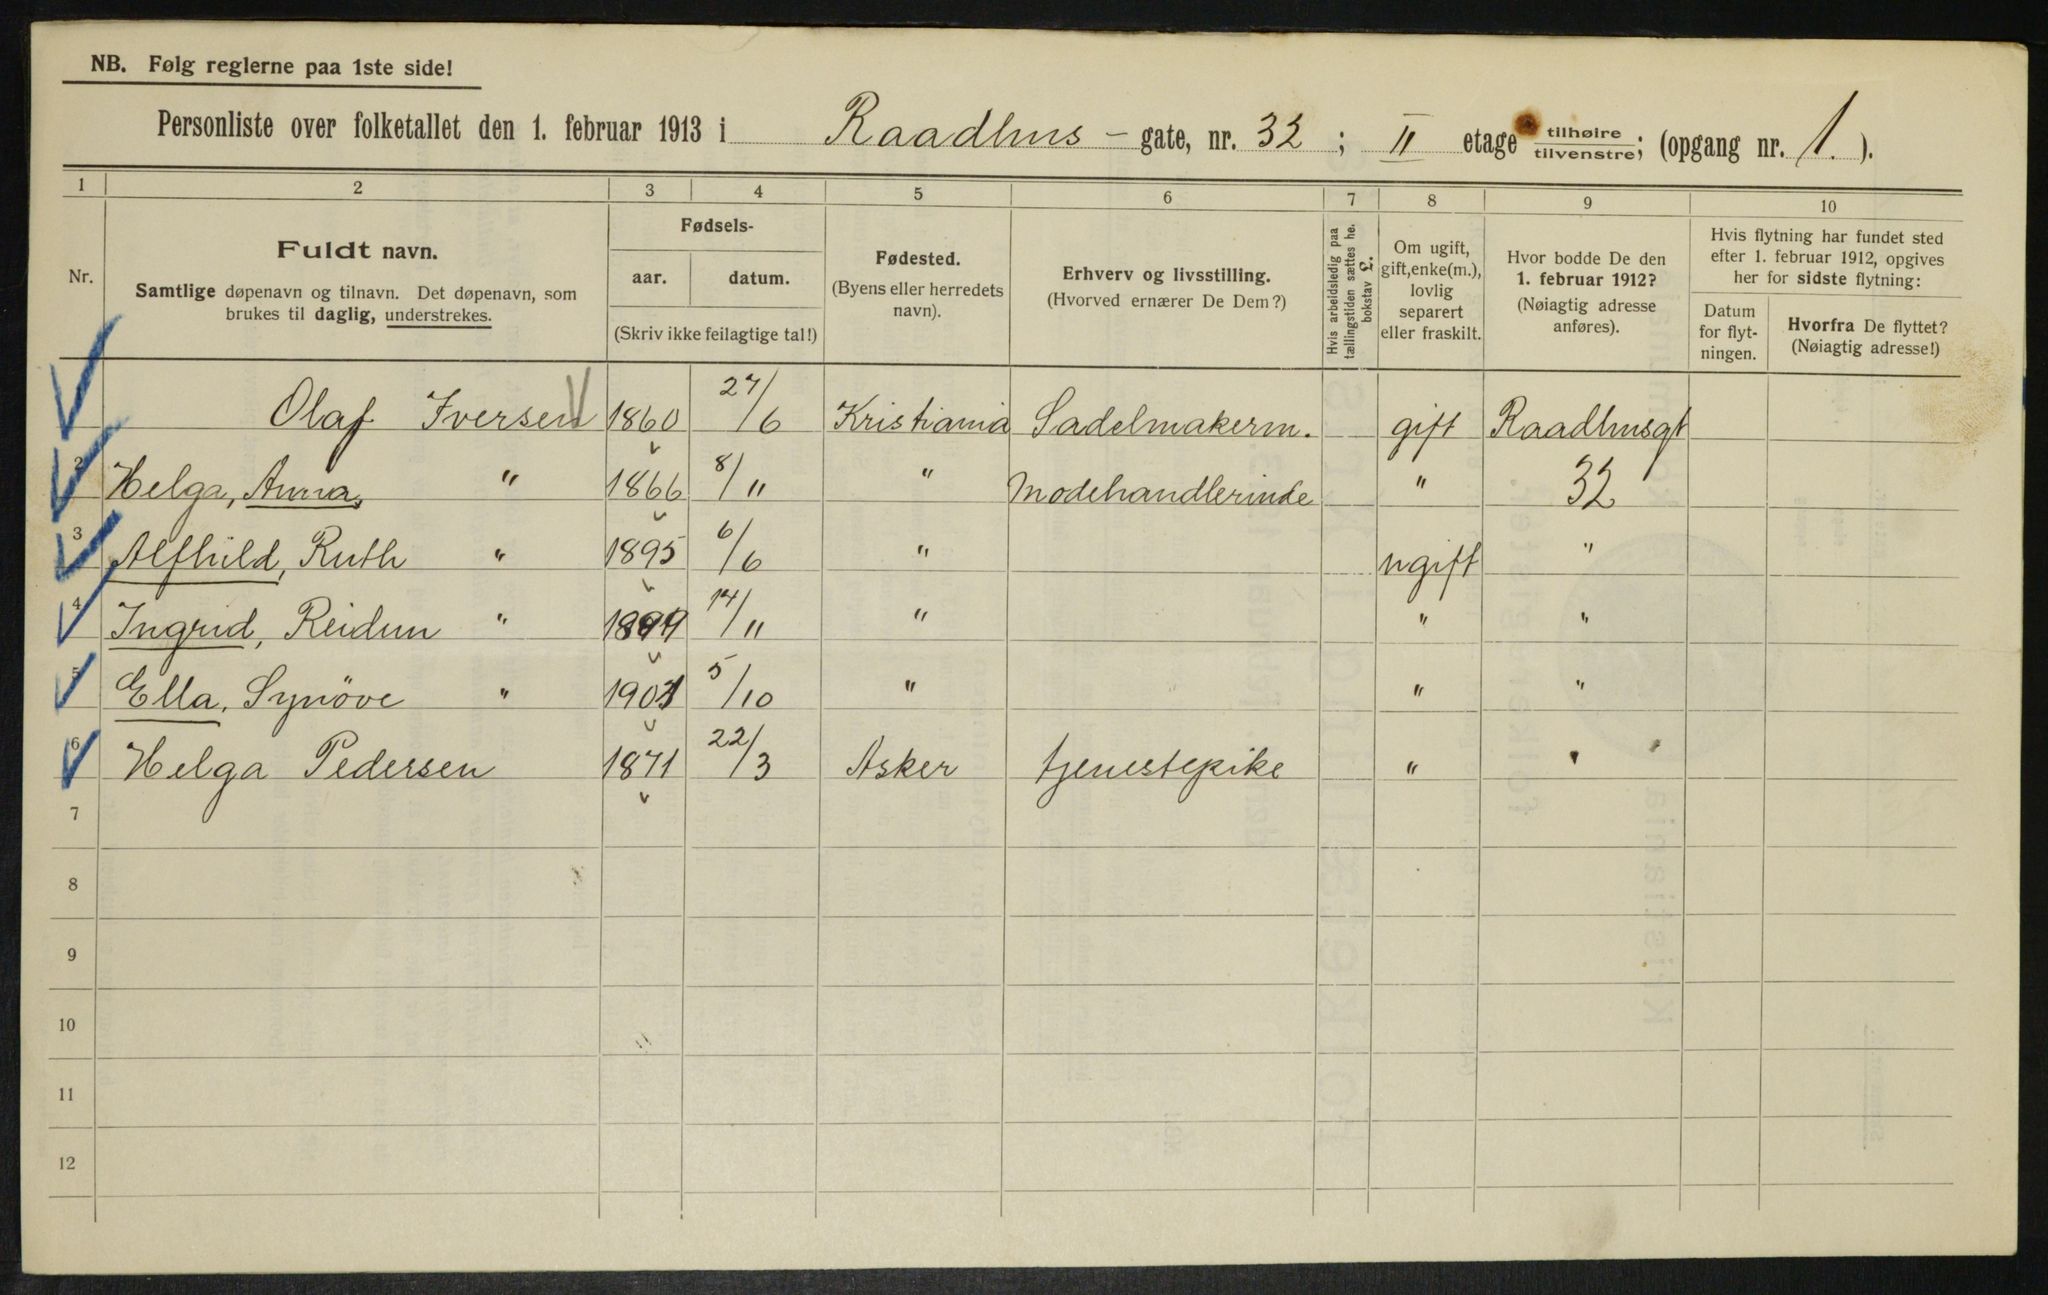 NB. Følg reglerne paa 1ste side!
Personliste over folketallet den 1. februar 1913 i Raadhus - gate, nr. 32 ; II etage tilhøire/tilvenstre; (opgang nr. 1.).
1 2 3 4 5 6 7 8 9 10
Nr.
Fuldt navn.
Samtlige døpenavn og tilnavn. Det døpenavn, som
brukes til daglig, understrekes.
Fødsels-
aar. datum.
(Skriv ikke feilagtige tal!)
Fødested.
(Byens eller herredets
navn).
Erhverv og livsstilling.
(Hvorved ernærer De Dem?)
Hvis arbeidsledig paa
tællingstiden sættes he.
bokstav £.
Om ugift,
gift, enke(m.),
lovlig
separert
eller fraskilt.
Hvor bodde De den
1. februar 1912?
(Nøiagtig adresse
anføres).
Hvis flytning har fundet sted
efter 1. februar 1912, opgives
her for sidste flytning:
Datum
for flyt-
ningen.
Hvorfra De flyttet?
(Nøiagtig adresse!)
Olaf Iversen 1860 27/6 Kristiania Sadelmakerm. gift Raadhusgt
2 Helga, Anna, " 1866 8/11 " Modehandlerinde " 32
3 Alfhild, Ruth " 1895 6/6 " ugift "
4 Ingrid, Reidun " 1899 14/11 " " "
5 Ella, Synöve " 1901 5/10 " " "
6 Helga Pedersen 1871 22/3 Asker tjenestepike " "
7
8
9
10
11
12